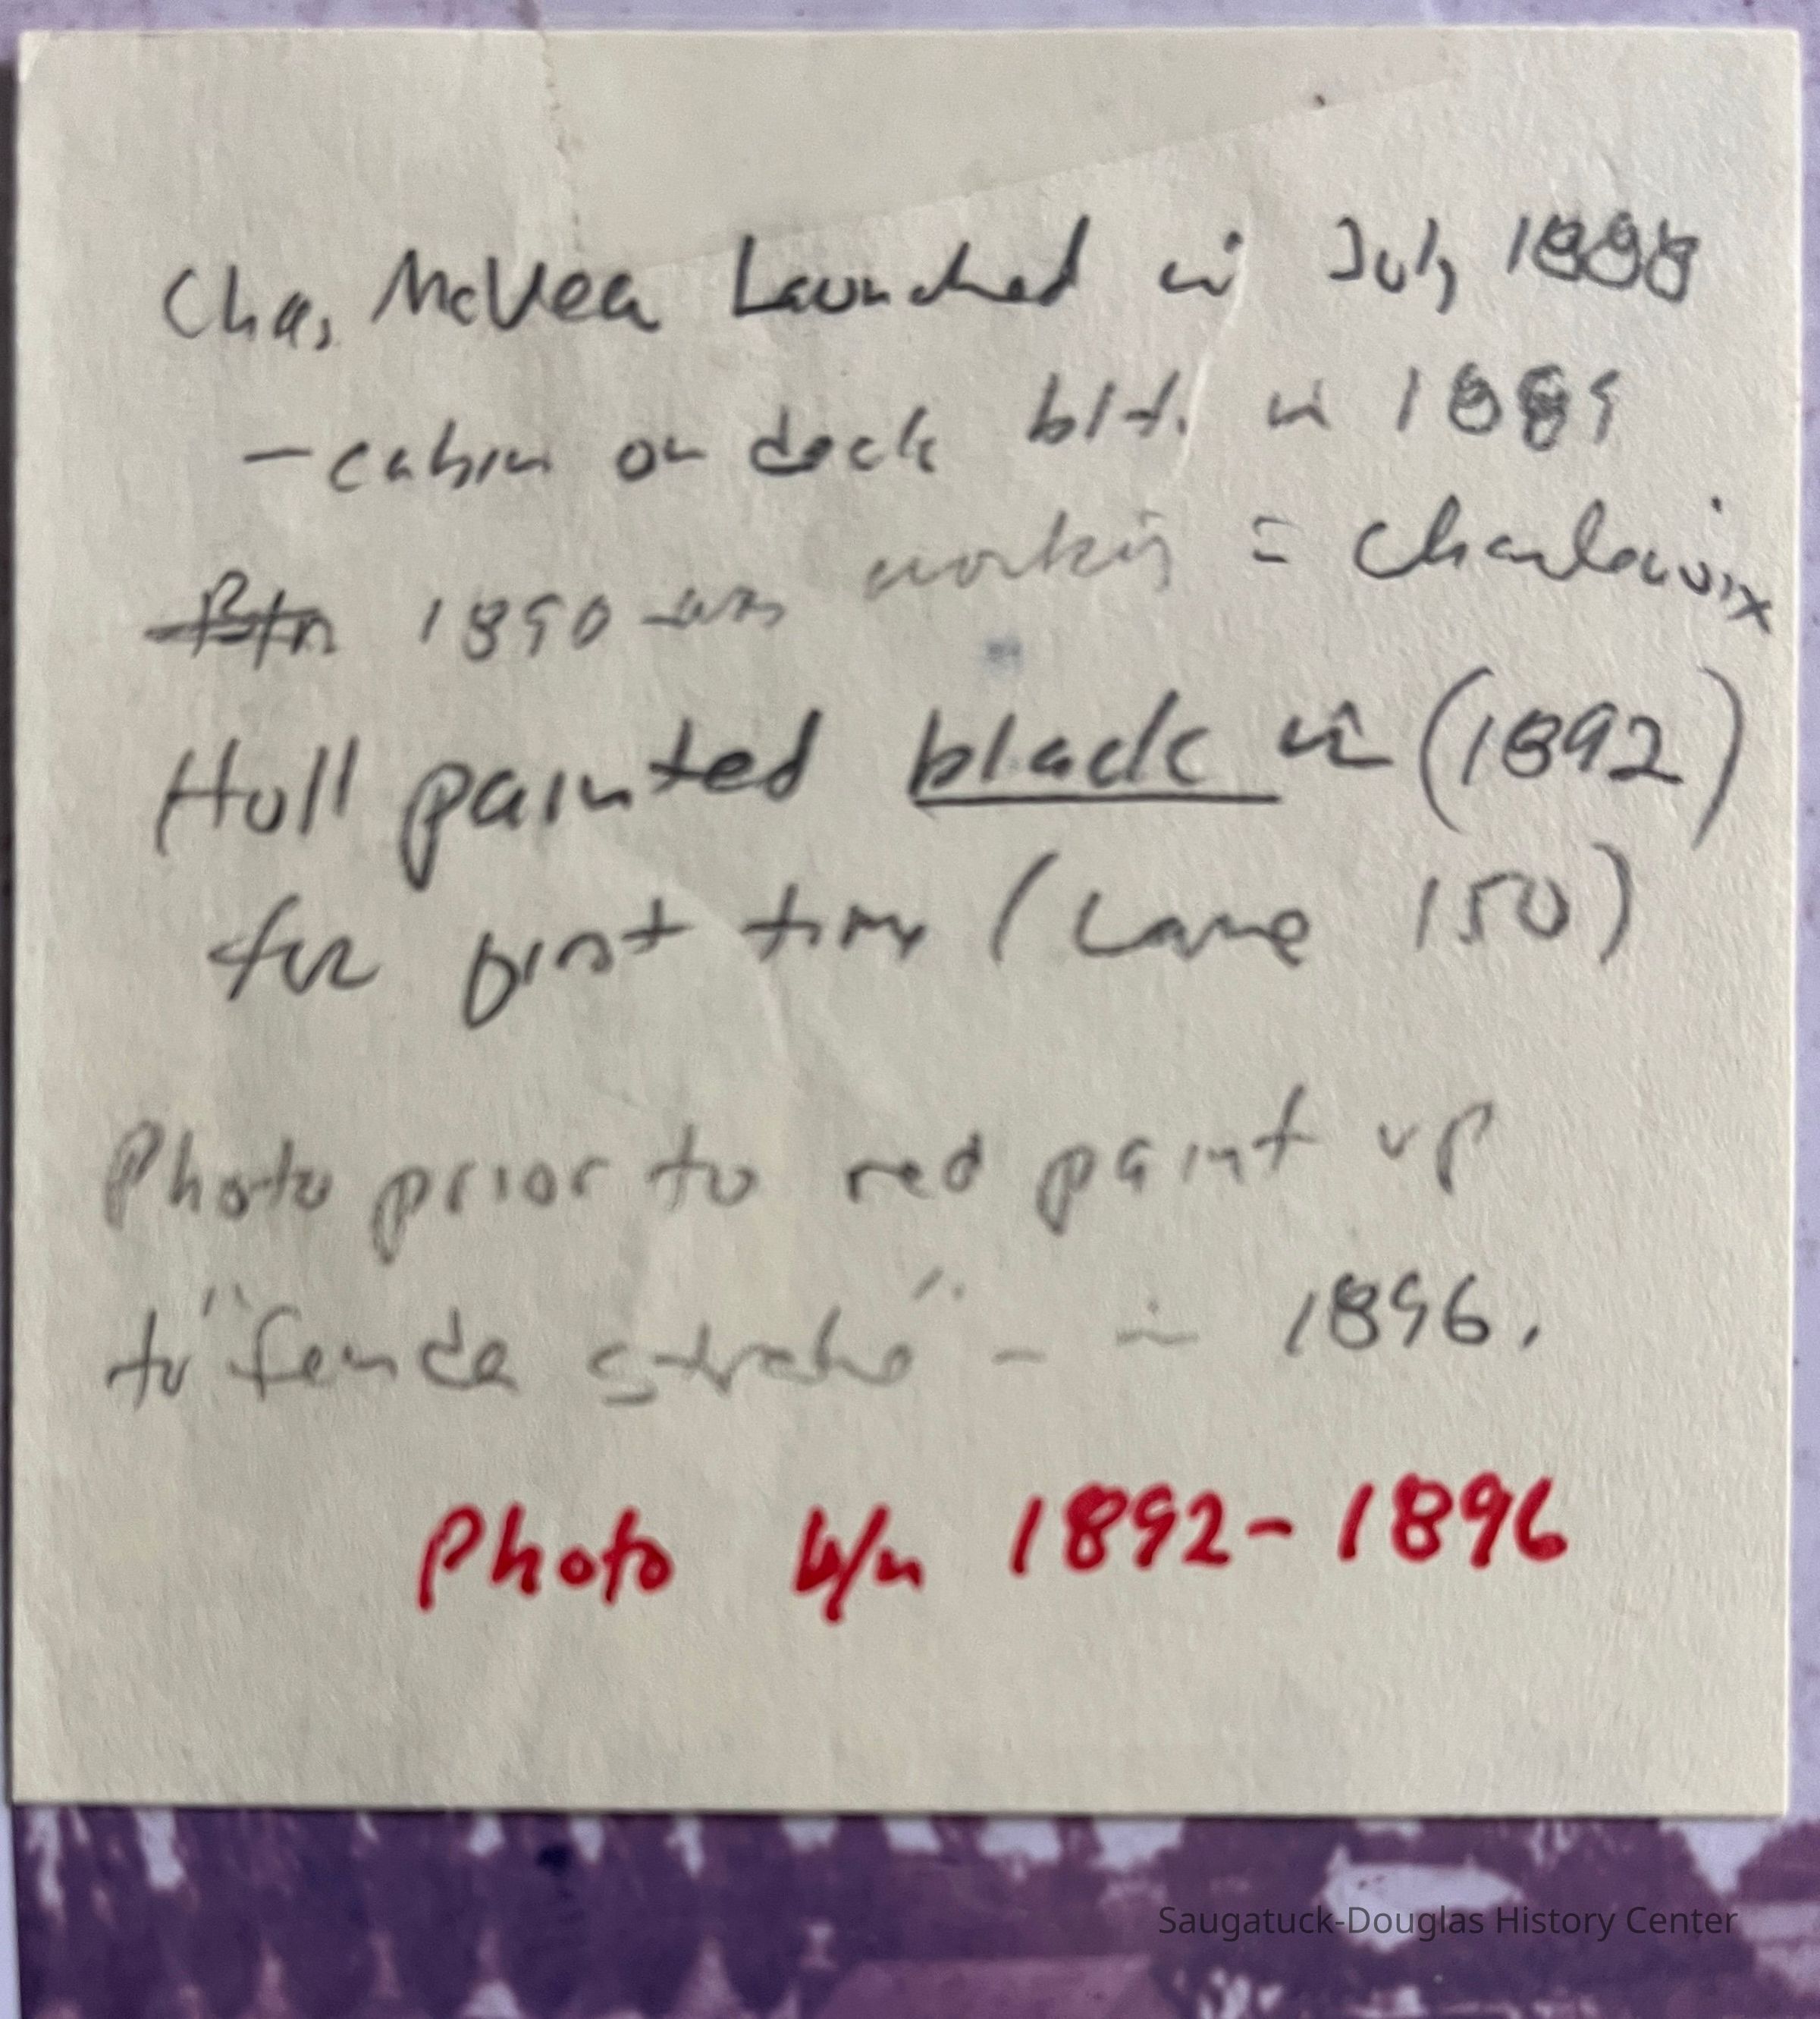 Cha, McVea Launched in July 1888
- cabin on deck blt. in 1889
Btn 1890 was workig = Charlevoix
Hull painted black in (1892)
for first time (Lane 150)
Photo prior to red paint up
to "fende strake" - in 1896.
Photo b/n 1892-1896
Saugatuck-Douglas History Center